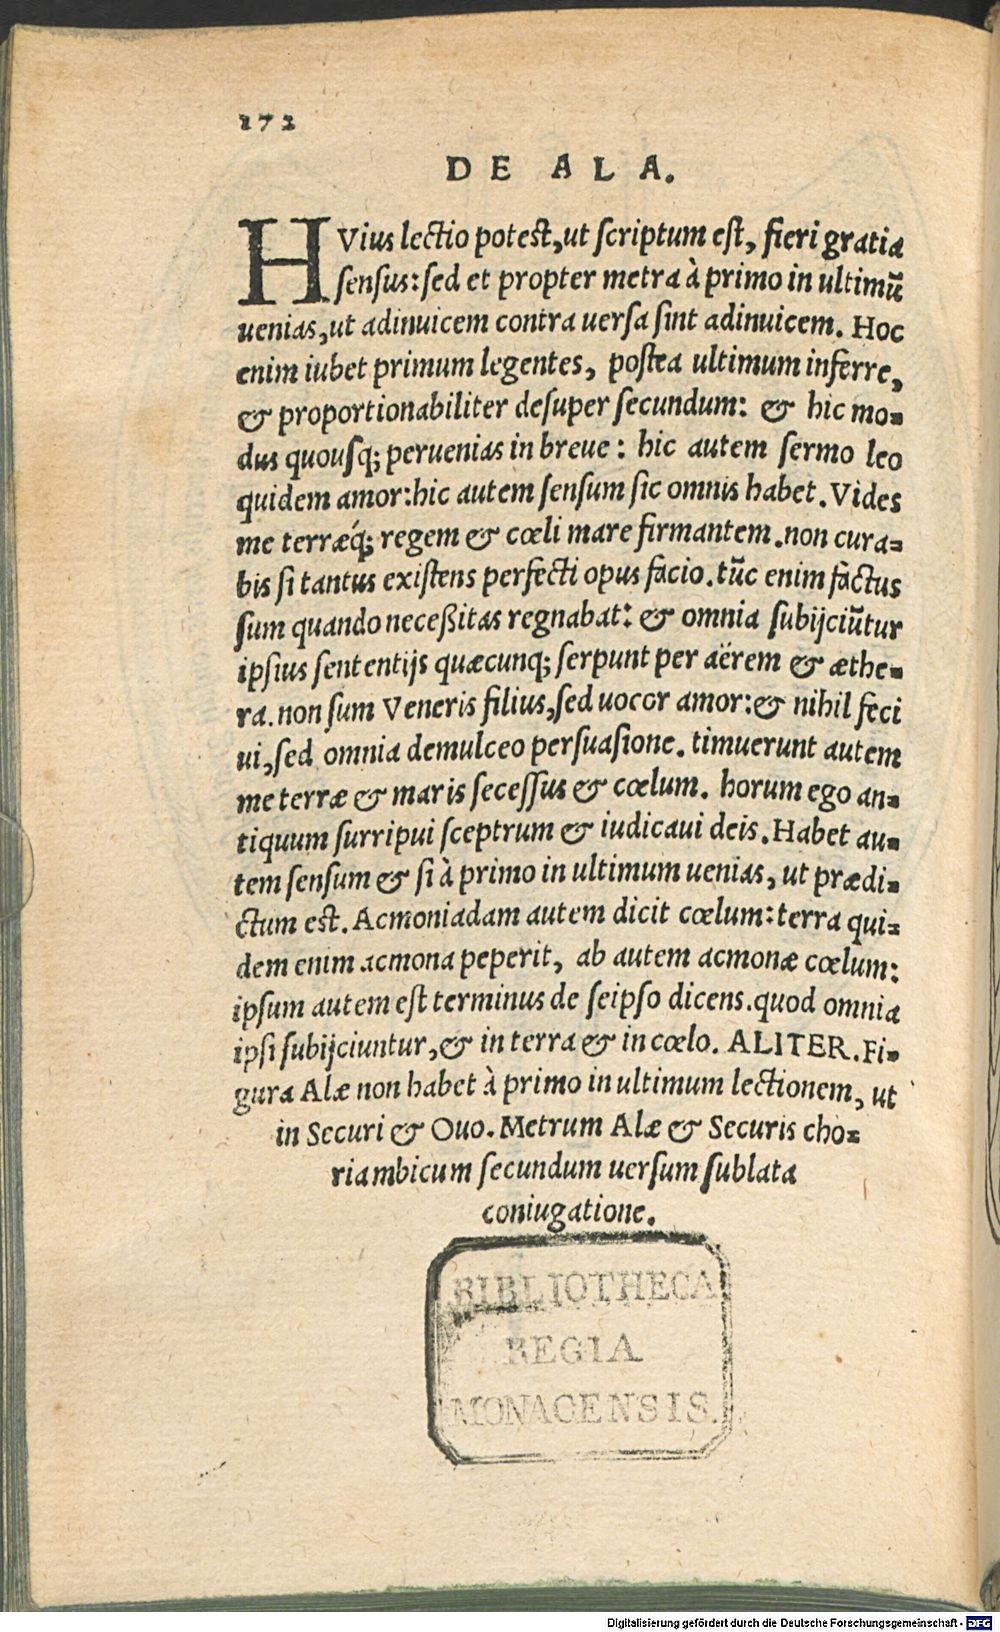 172
DE ALA.
HVius lectio potest,ut scriptum est, fieri gratia
sensus:sed et propter metra à primo in ultimũ
uenias,ut adinuicem contra uersa sint adinuicem. Hoc
enim iubet primum legentes, postea ultimum inferre,
& proportionabiliter desuper secundum: & hic mo-
dus quousq; peruenias in breue: hic autem sermo leo
quidem amor:hic autem sensum sic omnis habet. Vides
me terræq́; regem & cœli mare firmantem.non cura-
bis si tantus existens perfecti opus facio.tũc enim factus
sum quando neceßitas regnabat: & omnia subijciũtur
ipsius sententijs quæcunq; serpunt per aërem & æthe-
ra.non sum Veneris filius,sed uocor amor:& nihil feci
ui,sed omnia demulceo persuasione. timuerunt autem
me terræ & maris secessus & cœlum. horum ego an-
tiquum surripui sceptrum & iudicaui deis.Habet au-
tem sensum & si à primo in ultimum uenias, ut prædi-
ctum est. Acmoniadam autem dicit cœlum:terra qui-
dem enim acmona peperit, ab autem acmonæ cœlum:
ipsum autem est terminus de seipso dicens.quod omnia
ipsi subijciuntur,& in terra & in cœlo. ALITER.Fi-
gura Alæ non habet à primo in ultimum lectionem, ut
in Securi & Ouo.Metrum Alæ & Securis cho-
riambicum secundum uersum sublata
coniugatione.
BIBLIOTHECA
REGIA
MONACENSIS.
Digitalisierung gefördert durch die Deutsche Forschungsgemeinschaft - DFG